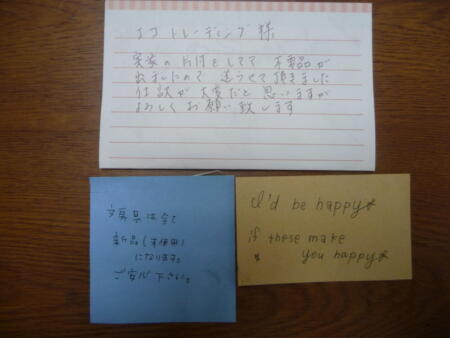 エコトレーディング様
実家の片付をしてて 不要品が
出ましたので 送らせて頂きました
仕訳が大変だと思いますが
よろしくお願い致します
文房具は全て
新品(未使用)
になります。
ご安心下さい。
I'd be happy
if these make
you happy